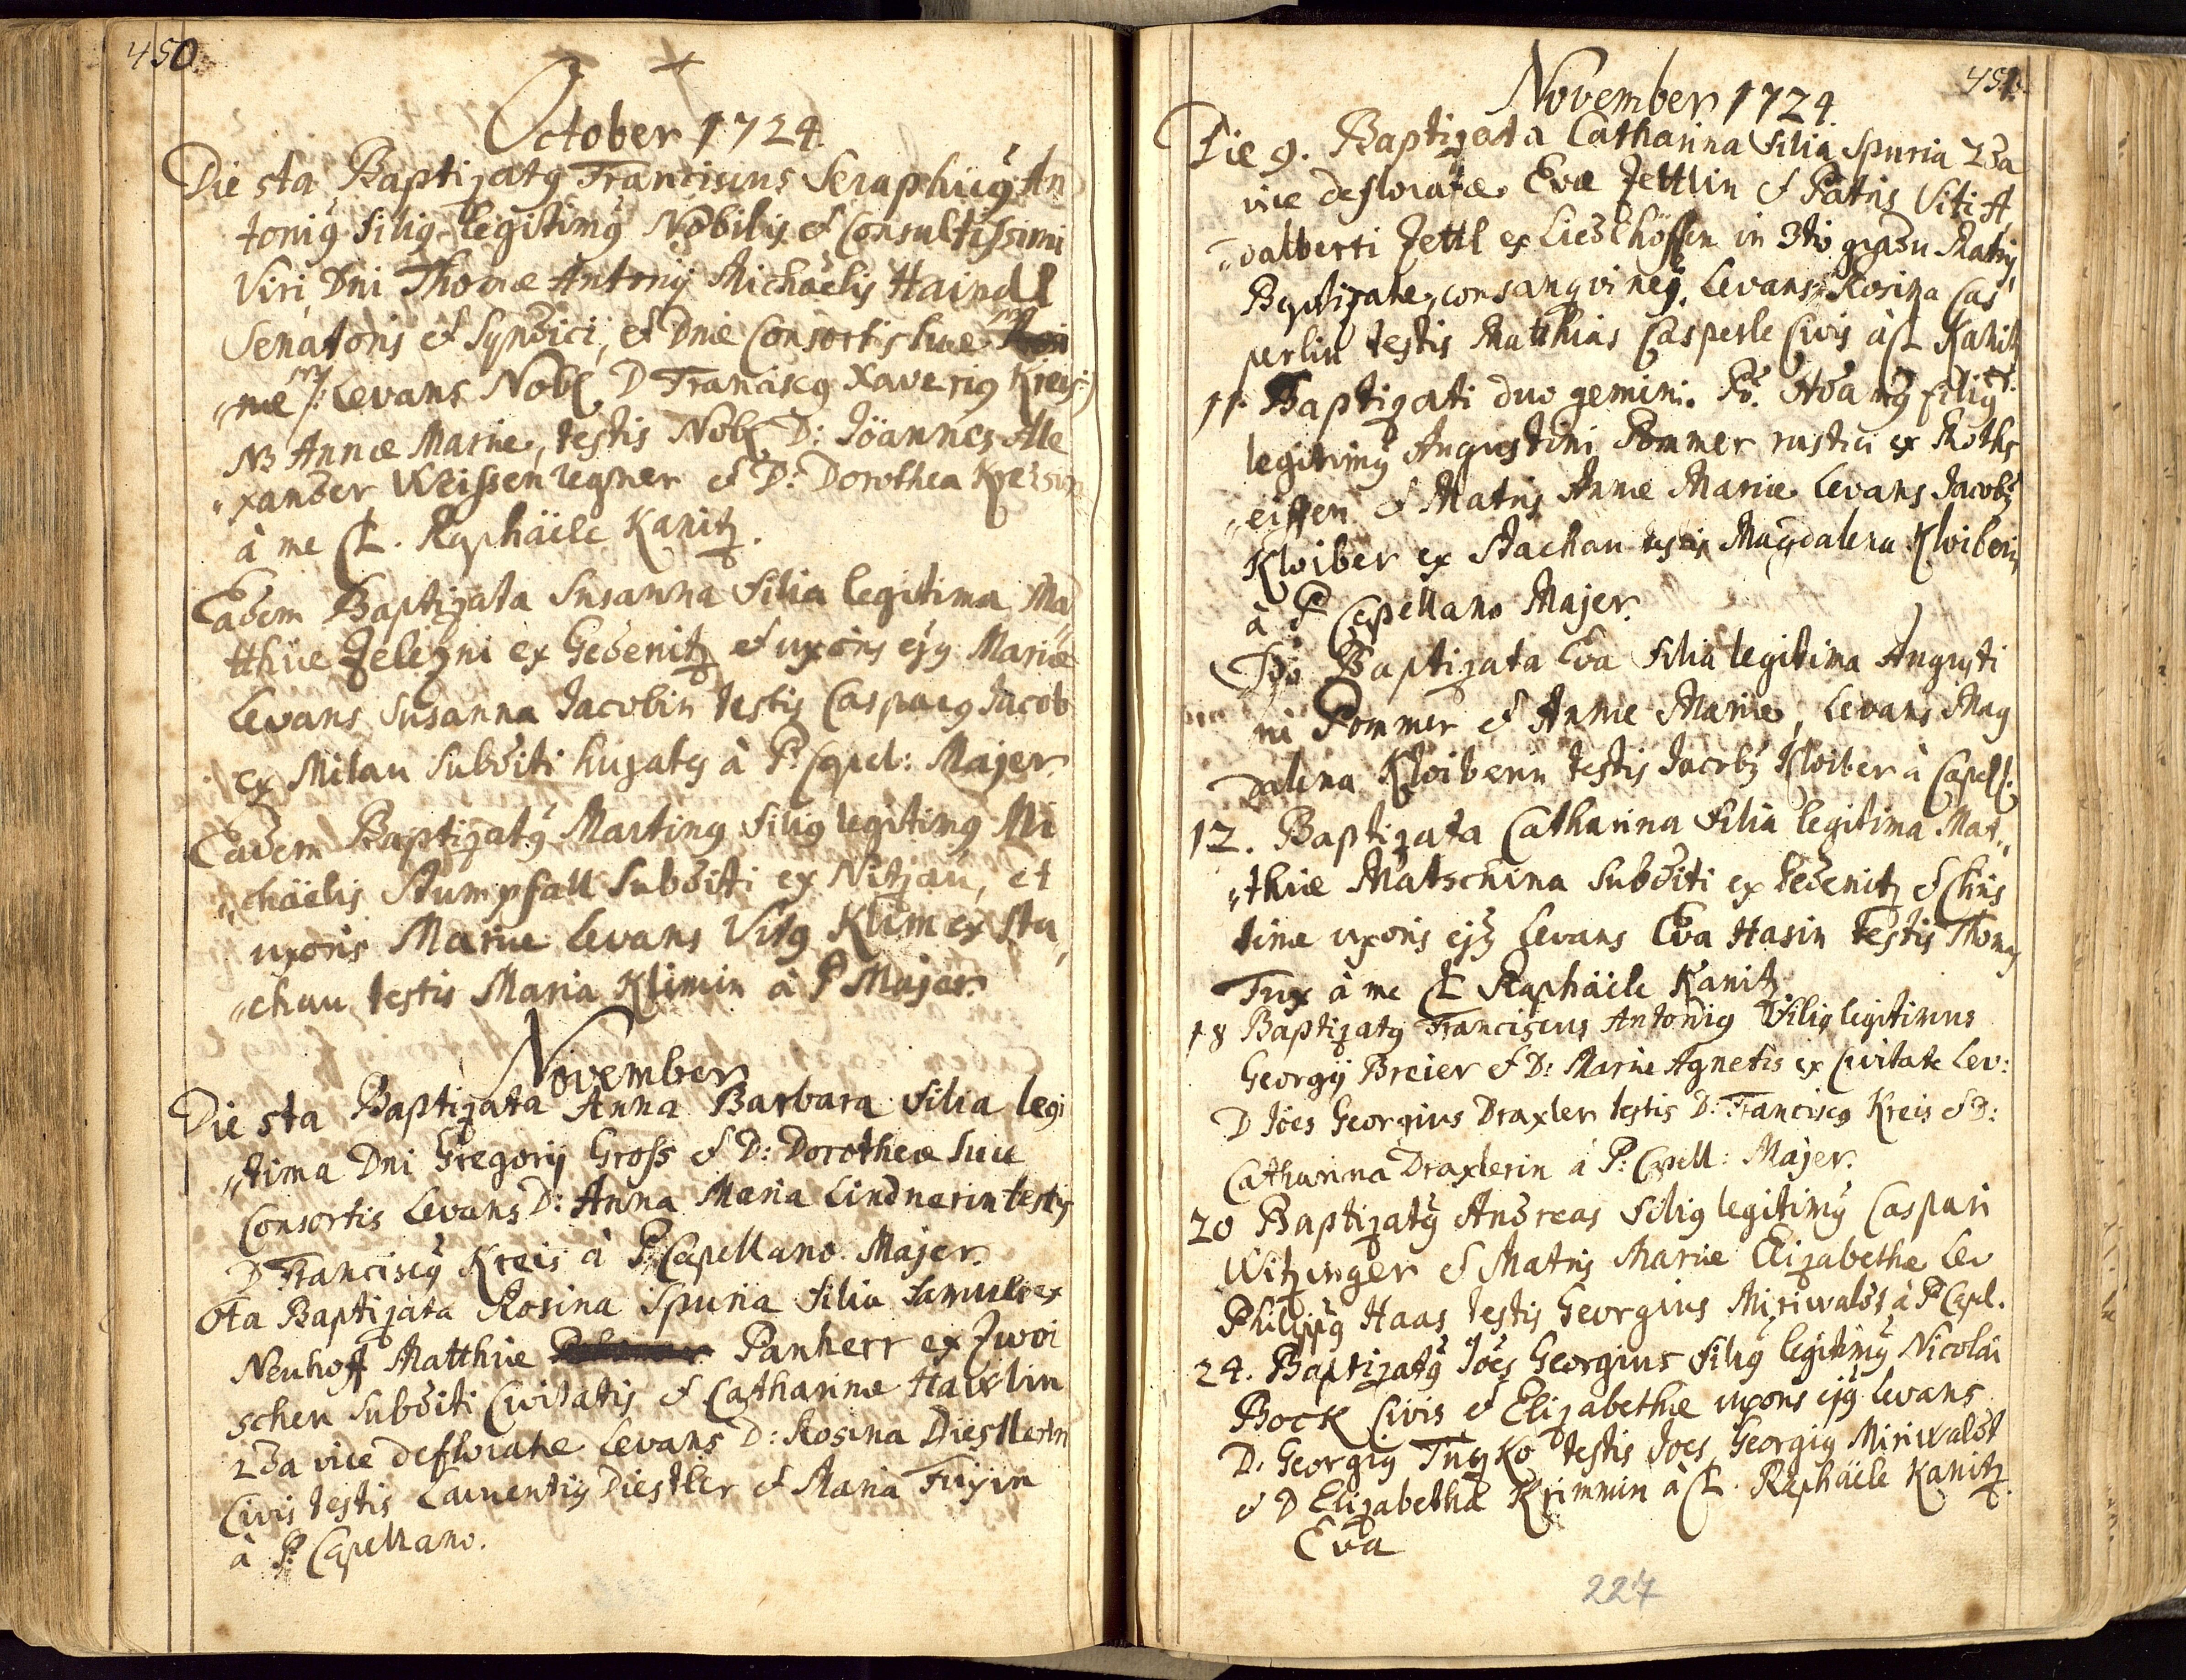 450.
October 1724.
Die 5ta Baptizatus Franciscus Seraphicus An
tonius filius legitimus Nobilis et Consultissimi
Viri Dni Thomæ Antonij Michaelis Haindl
Senatoris et Syndici, et Dnæ Consortis suæ
næ /: Levans Nob. D Franciscus Xaverius Kreis
NB Annæ Mariæ, testis Nob. D: Joannes Ale
"xander Weissenregner et D: Dorothea Kreisin
à me CL. Raphäele Kanitz.
Eadem Baptizata Susanna filia legitima Ma"
tthiæ Zelezni ex Gedenitz et uxoris ejus Mariæ
Levans Susanna Jacobin testis Casparus Jacob
ex Milau subditi hujatus à P. Capel: Majer.
Eadem Baptizatus Martinus filius legitimus Mi
"chäelis Stumpfall subditi ex Nitzau, et
uxoris Mariæ Levans Vitus Klim ex Sta"
"chau testis Maria Klimin à P Majer.
November
Die 5ta Baptizata Anna Barbara filia legi
"tima Dni Gregorij Gross et D: Dorotheæ suæ
Consortis Levans D: Anna Maria Lindnerin testis
D Franciscus Kreis à P. Capellano Majer.
6ta Baptizata Rosina spuria filia famuli ex
Neuhoff Matthiæ Panherr ex Zwoi
schen subditi Civitatis et Catharinæ Haixlin
2da vice defloratæ Levans D: Rosina Diestlerin
Civis testis Laurentius Diestler et Maria Fuxin
à P. Capellano.
451.
November 1724.
Die 9. Baptizata Catharina filia spuria 2da
vice defloratæ Evæ Zettlin et Patris Viti A
"dalberti Zettl ex Liedlhöffen in 3tio gradu Matris
Baptizatæ consanguineus. Levans Rosina Cas
perlin testis Matthias Casperle Civis à CL Kanitz
11. Baptizati duo gemini. Po. Adamus filius
legitimus Augustini Pommer rustici ex Roths
"eiffen et Matris Annæ Mariæ Levans Jacobus
Kloiber ex Stachau testis Magdalena Kloiberin
à P Capellano Majer.
2do Baptizata Eva filia legitima Augusti
ni Pommer et Annæ Mariæ, Levans Mag
dalena Kloiberin testis Jacobus Kloiber à Capell:
12. Baptizata Catharina filia legitima Mat"
"thiæ Matschina subditi ex Gedenitz et Chris
tinæ uxoris ejus Levans Eva Hasin testis Thomas
Fux à me CL Raphäele Kanitz
18 Baptizatus Franciscus Antonius filius legitimus
Georgij Breier et D: Mariæ Agnetis ex Civitate Lev:
D Joes Georgius Draxler testis D: Franciscus Kreis et D:
Catharina Draxlerin à P: Capell: Majer.
20 Baptizatus Andreas filius legitimus Caspari
Witzinger et Matris Mariæ Elizabethæ Lev
Philippus Haas testis Georgius Miriwaldt à P Capl.
24. Baptizatus Joes Georgius filius legitimus Nicolai
Bock Civis et Elizabethæ uxoris ejus Levans
D. Georgius Tuzko testis Joes Georgius Miriwaldt
et D Elizabetha Krimmin à CL. Raphäele Kanitz.
Eva
227